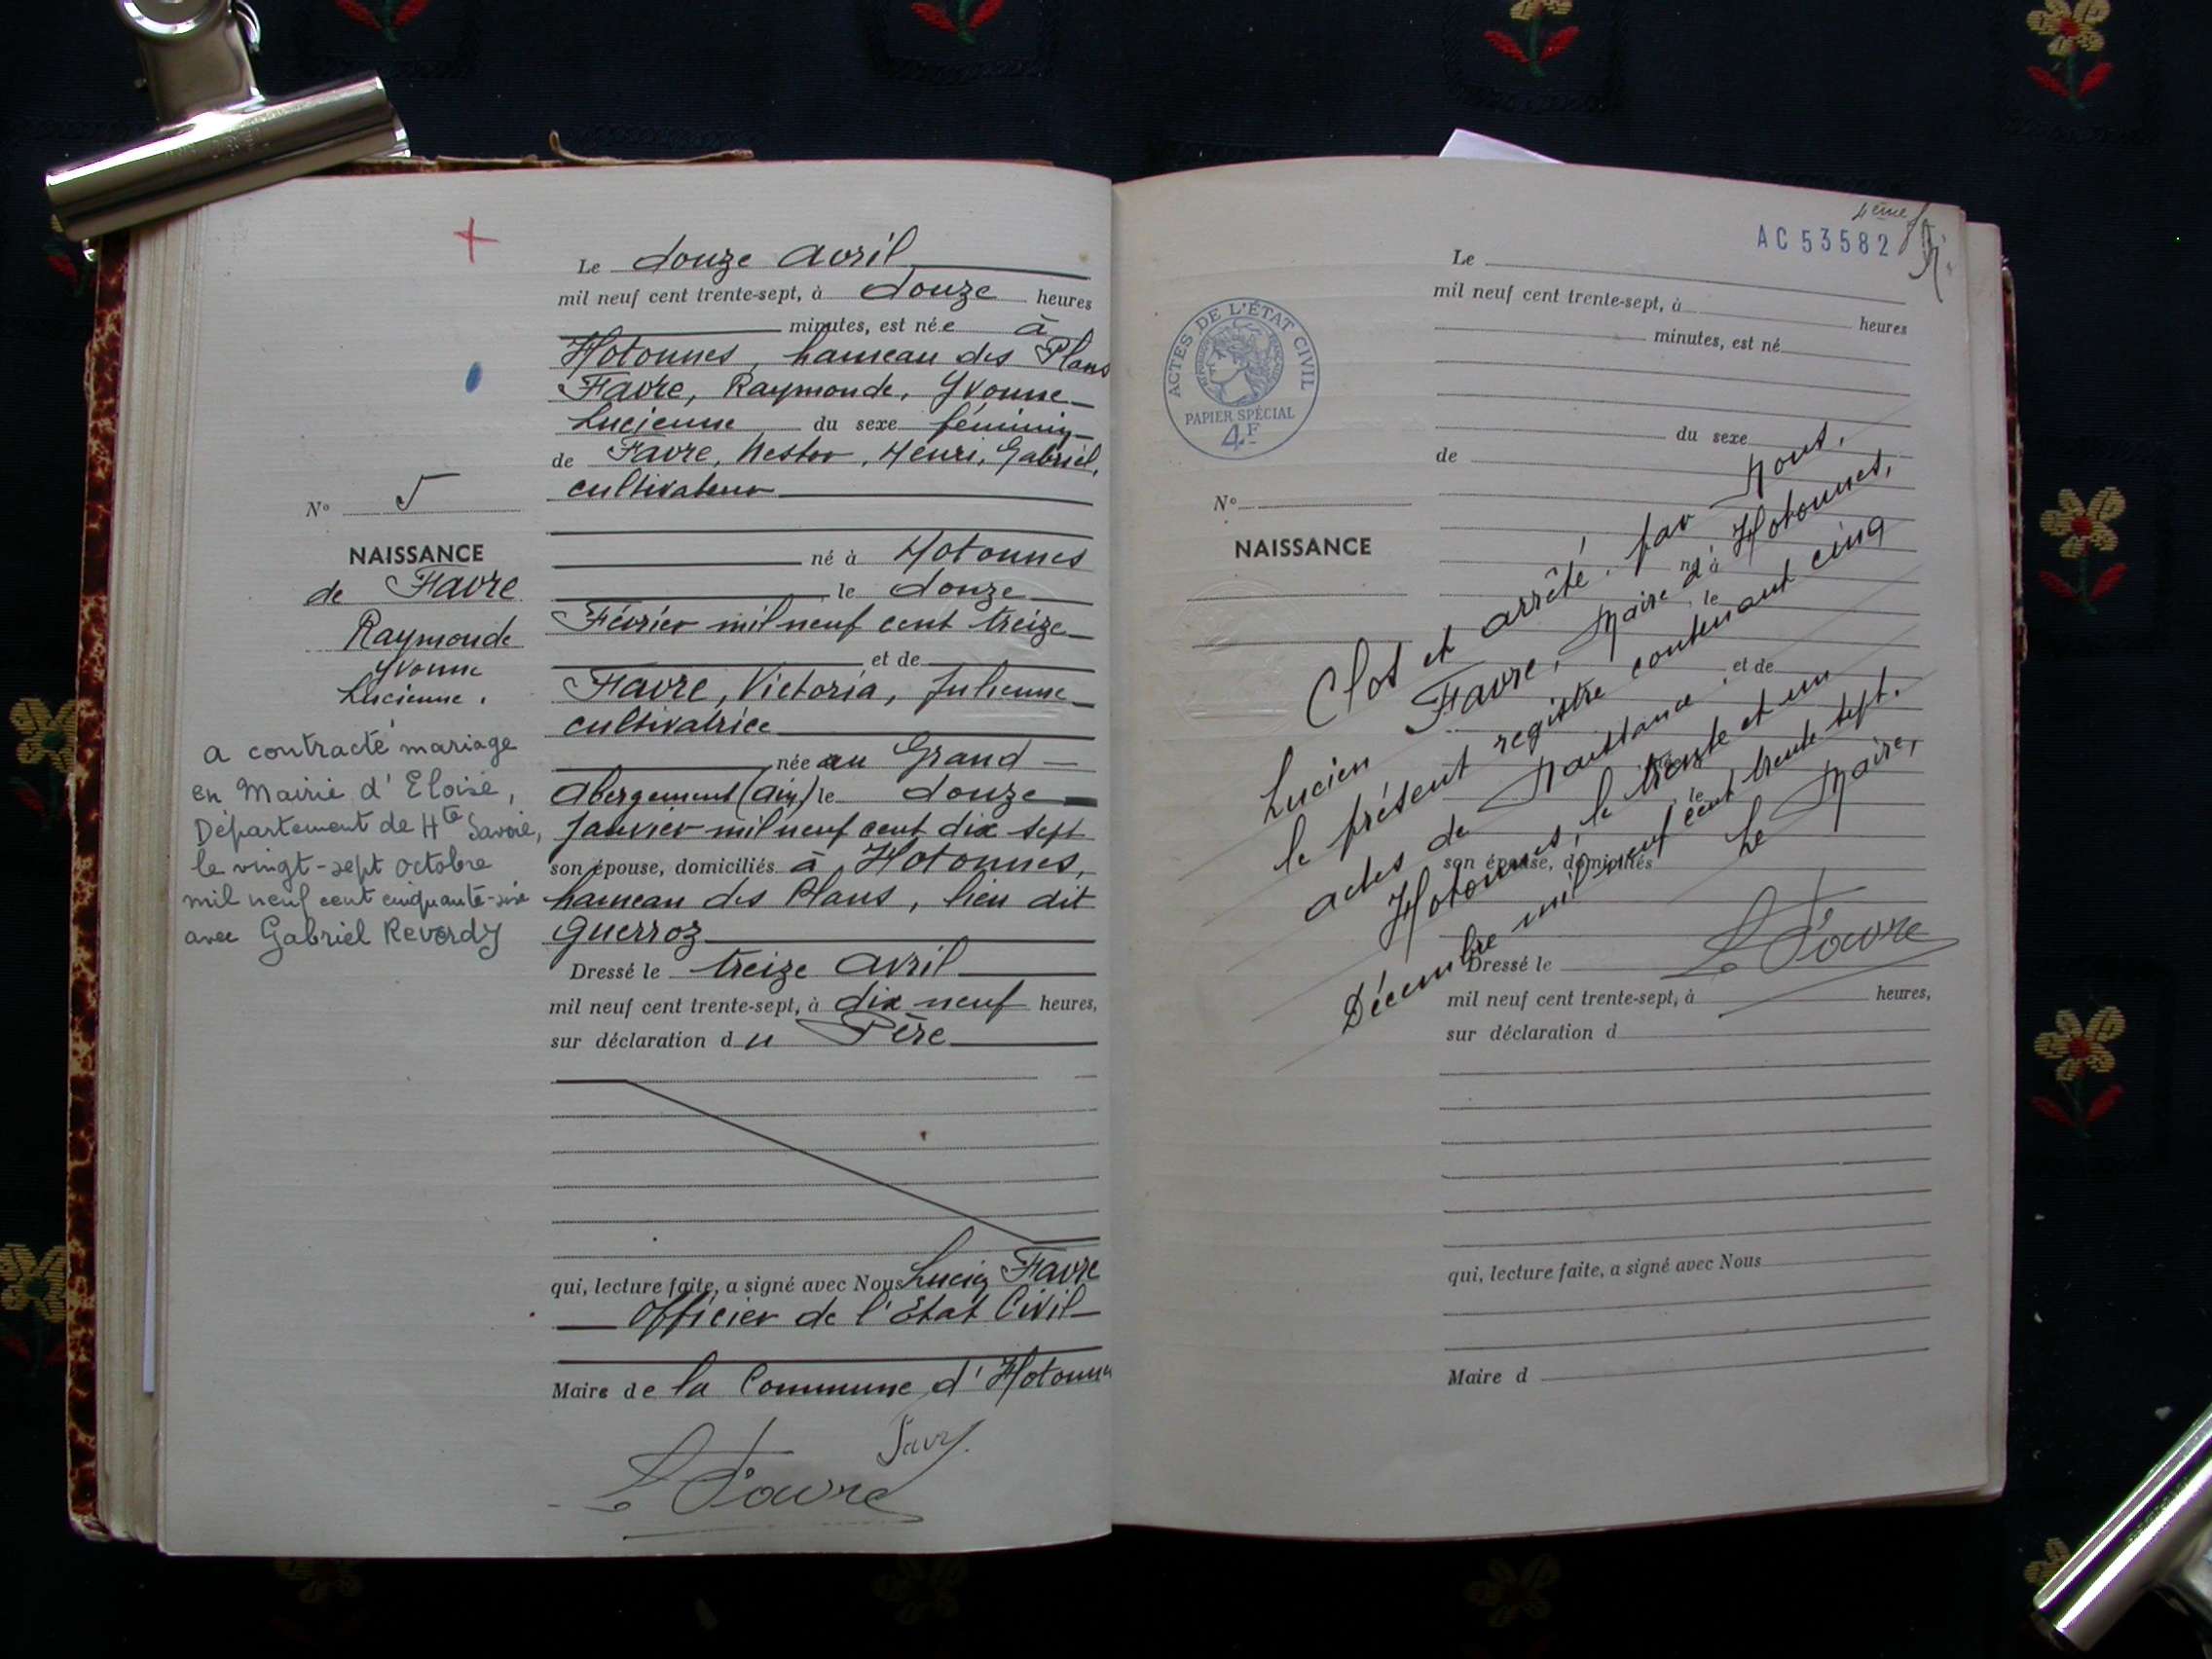 Le douze avril
mil neuf cent trente-sept, à douze heures
minutes, est née à
Hotonnes, hameau des Plans
Favre, Raymonde, Yvonne
Lucienne du sexe féminin
de Favre, Nestor, Henri, Gabriel,
cultivateur
né à Hotonnes
le douze
Février mil neuf cent treize
et de
Favre, Victoria, Julienne
cultivatrice
née au Grand
Abergement (Ain) le douze
Janvier mil neuf cent dix sept
son épouse, domiciliés à Hotonnes,
hameau des Plans, lieu dit
Guerroz
Dressé le treize avril
mil neuf cent trente-sept, à dix neuf heures,
sur déclaration du Père
qui, lecture faite, a signé avec Nous Lucien Favre
Officier de l'Etat Civil
Maire de la Commune d'Hotonnes
Favre
L Favre
N° 5
NAISSANCE
de Favre
Raymonde
Yvonne
Lucienne.
a contracté mariage
en Mairie d'Eloise,
Département de Hte Savoie,
le vingt-sept octobre
mil neuf cent cinquante-six
avec Gabriel Reverdy
4ème
AC 53582
ACTES DE L'ÉTAT CIVIL
PAPIER SPÉCIAL
4F
N°
NAISSANCE
Le
mil neuf cent trente-sept, à heures
minutes, est né
du sexe
de
né à
le
et de
née
le
son épouse, domiciliés
Dressé le
mil neuf cent trente-sept, à heures,
sur déclaration d
qui, lecture faite, a signé avec Nous
Maire d
Clos et arrêté par Nous,
Lucien Favre, Maire d'Hotonnes,
le présent registre contenant cinq
actes de Naissance
Hotonnes, le trente et un
Décembre mil neuf cent trente sept.
Le Maire,
L Favre